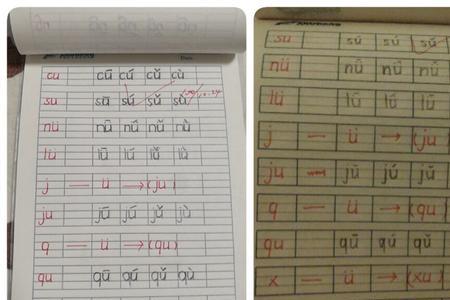 cu cū cú cǔ cù
su sū sú sǔ sù
nü nǖ nǘ nǚ nǜ
lü lǖ lǘ lǚ lǜ
j — ü → (ju)
ju jū jú jǔ jù
q — ü → (qu)
qu qū qú qǔ qù
su sū sú sǔ
nü nǖ nǘ nǚ
lü lǖ lǘ lǚ
j — ü → (ju
ju jū jú jǔ
q — ü → (qu
qu qū qú qǔ
x — ü → (xu